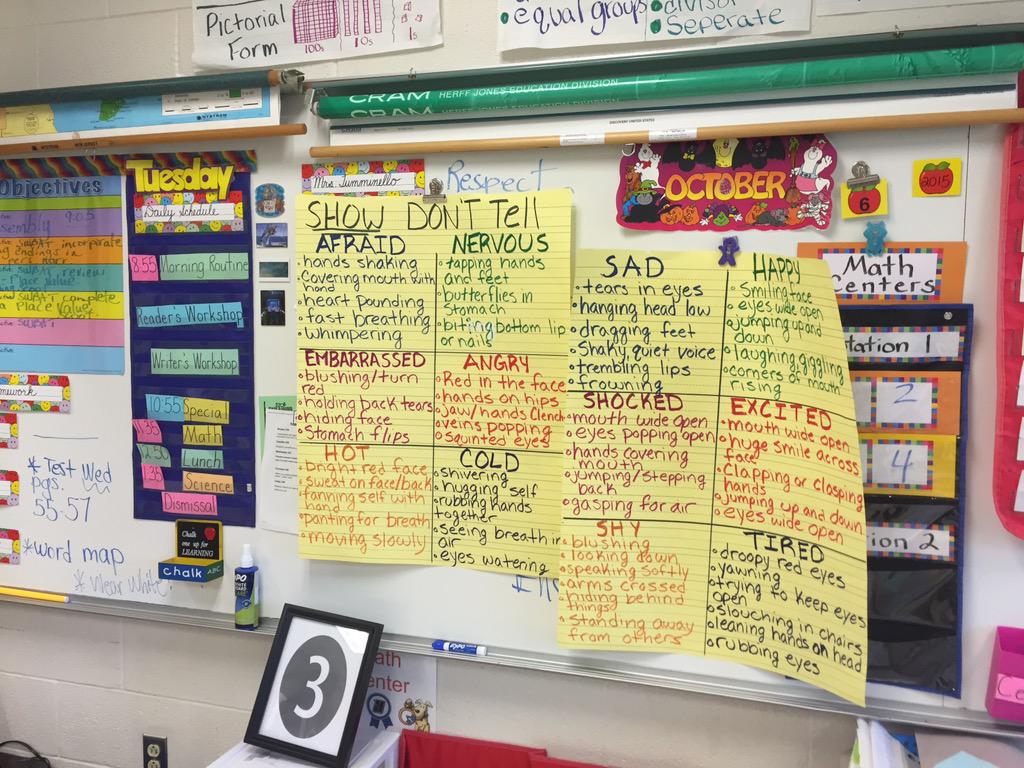 Pictorial
Form
100s
10s
1s
equal groups
divisor
Seperate
CRAM HERFF JONES EDUCATION DIVISION
CRAM HERFF JONES EDUCATION DIVISION
DISCOVERY UNITED STATES
NYSTROM
Objectives
9:05
SWBAT incorporate
endings in
SWBAT review
Place Value
SWBAT complete
a Place Value
Tuesday
Daily Schedule
8:55 Morning Routine
Reader's Workshop
Writer's Workshop
10:55 Special
11:35 Math
12:50 Lunch
1:35 Science
Dismissal
* Test Wed
pgs.
55-57
* word map
* Wear White
Chalk
one up for
LEARNING
Chalk ABC
EXPO
Mrs. Summinello
Respect
OCTOBER
6
2015
SHOW DON'T Tell
AFRAID
• hands shaking
• Covering mouth with
hand
• heart pounding
• fast breathing
• whimpering
NERVOUS
• tapping hands
and feet
• butterflies in
Stomach
• biting bottom lip
or nails
EMBARRASSED
• blushing/turn
red
• holding back tears
• hiding face
• Stomach flips
ANGRY
• Red in the face
• hands on hips
• jaw/hands Clench
• veins popping
• squinted eyes
HOT
• bright red face
• sweat on face/back
• fanning self with
hand
• panting for breath
• moving slowly
COLD
• shivering
• hugging self
• rubbing hands
together
• seeing breath in
air
• eyes watering
SAD
• tears in eyes
• hanging head low
• dragging feet
• Shaky, quiet voice
• trembling lips
• frowning
HAPPY
• Smiling face
• eyes wide open
• jumping up and
down
• laughing, giggling
• corners of mouth
rising
SHOCKED
• mouth wide open
• eyes popping open
• hands covering
mouth
• jumping/stepping
back
• gasping for air
EXCITED
• mouth wide open
• huge smile across
face
• clapping or clasping
hands
• jumping up and down
• eyes wide open
SHY
• blushing
• looking down
• speaking softly
• arms crossed
• hiding behind
things
• standing away
from others
TIRED
• droopy red eyes
• yawning
• trying to keep eyes
open
• slouching in chairs
• leaning hands on head
• rubbing eyes
Math
Centers
tation 1
2
4
ion 2
3
ath
enter